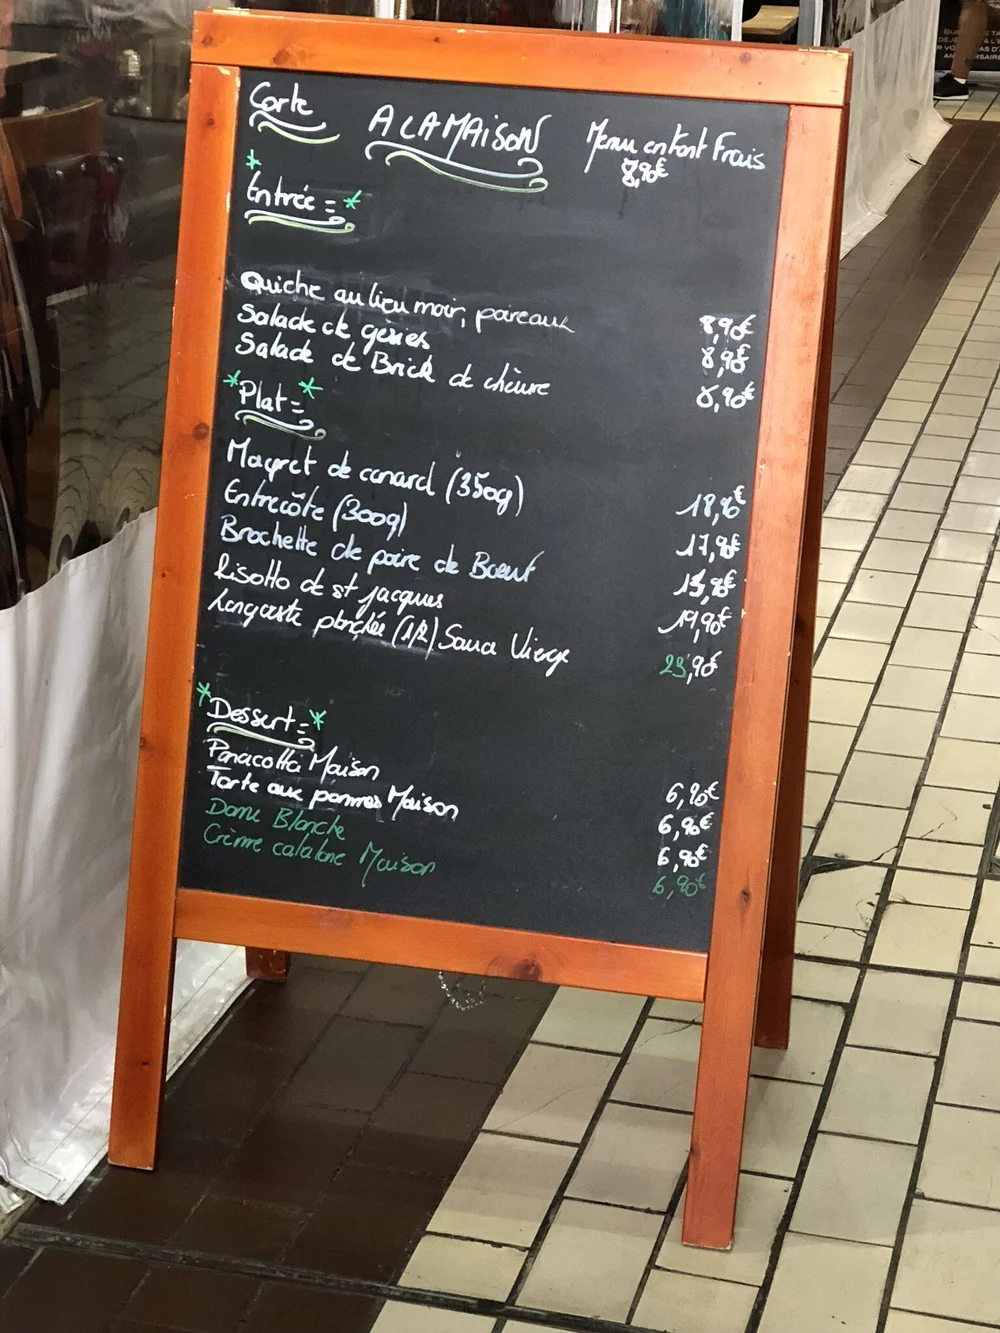 Carte
A LA MAISON
Menu enfant Frais
8,90€
* Entrée = *
Quiche au lieu noir, poireaux 8,90€
Salade de gésiers 8,90€
Salade de Brick de chèvre 8,90€
* Plat = *
Magret de canard (350g) 18,90€
Entrecôte (300g) 17,90€
Brochette de poire de Boeuf 15,90€
Risotto de st jacques 19,90€
Langouste planchée (1/2) Sauce Vierge 23,90€
* Dessert = *
Panacotta Maison 6,90€
Tarte aux pommes Maison 6,90€
Dame Blanche 6,90€
Crème catalane Maison 6,90€